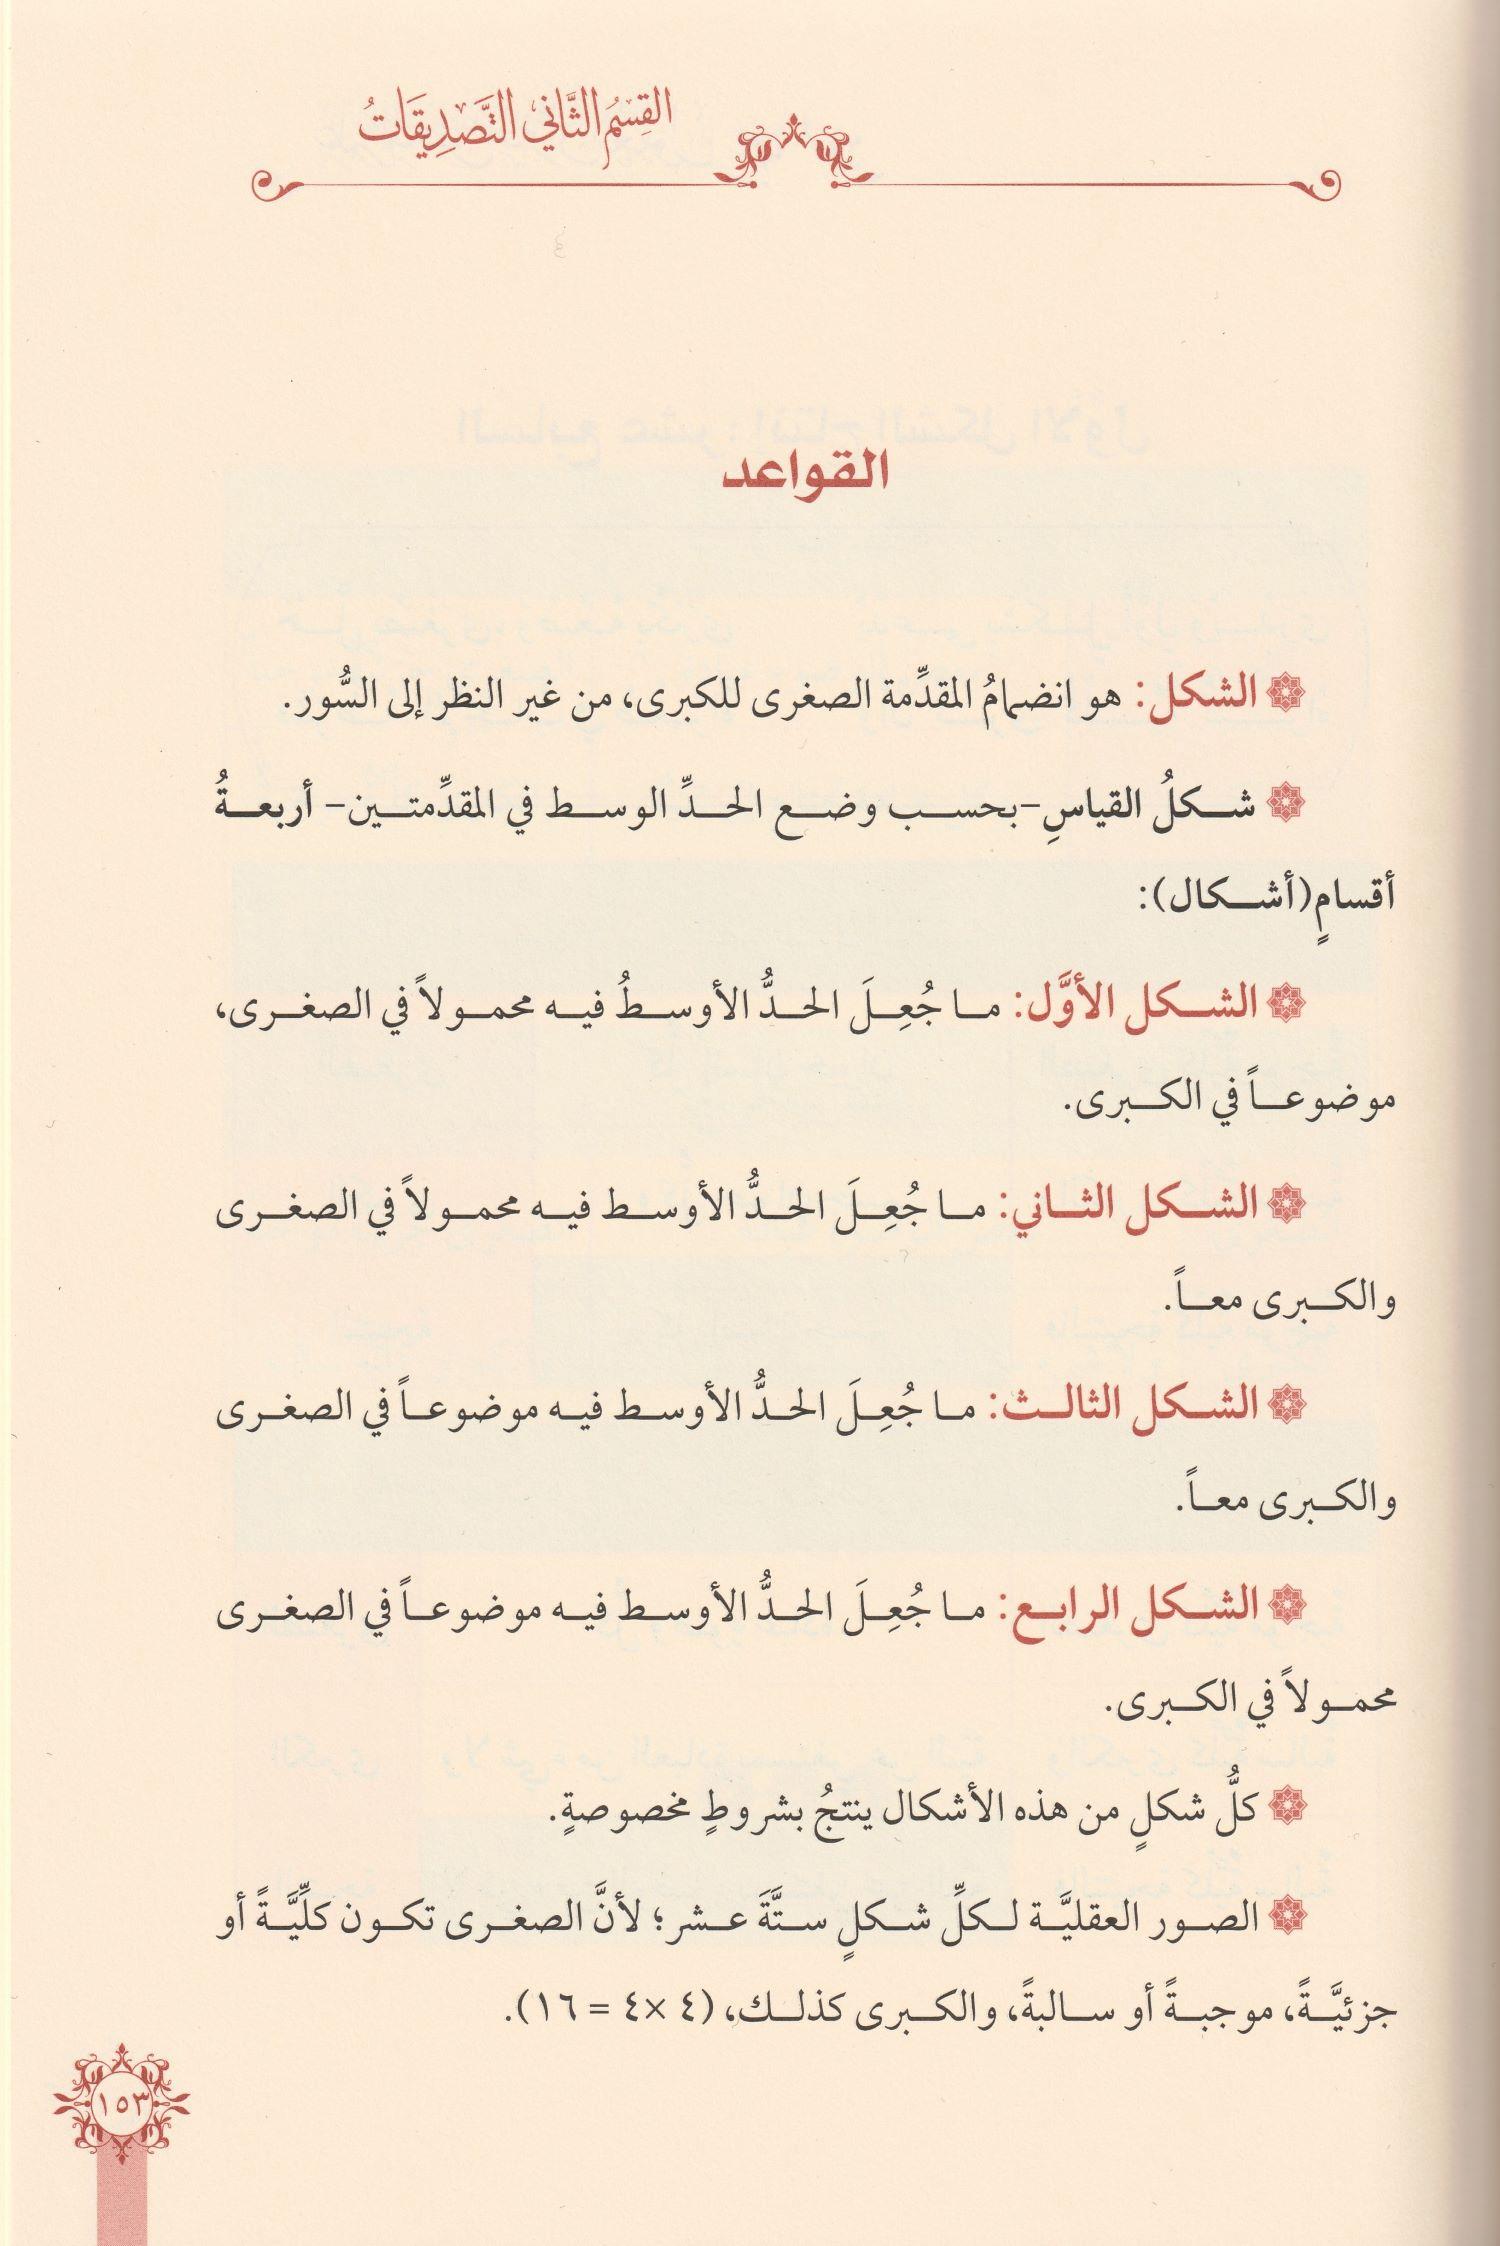 القِسمُ الثَّاني التَّصدِيقَاتُ
القواعد
الشكل: هو انضمامُ المقدِّمة الصغرى للكبرى، من غير النظر إلى السُّور.
شكلُ القياسِ -بحسب وضع الحدِّ الوسط في المقدِّمتين- أربعةُ
أقسامٍ(أشكال):
الشكل الأوَّل: ما جُعِلَ الحدُّ الأوسطُ فيه محمولاً في الصغرى،
موضوعاً في الكبرى.
الشكل الثاني: ما جُعِلَ الحدُّ الأوسط فيه محمولاً في الصغرى
والكبرى معاً.
الشكل الثالث: ما جُعِلَ الحدُّ الأوسط فيه موضوعاً في الصغرى
والكبرى معاً.
الشكل الرابع: ما جُعِلَ الحدُّ الأوسط فيه موضوعاً في الصغرى
محمولاً في الكبرى.
كلُّ شكلٍ من هذه الأشكال ينتجُ بشروطٍ مخصوصةٍ.
الصور العقليَّة لكلِّ شكلٍ ستَّةَ عشر؛ لأنَّ الصغرى تكون كلِّيَّةً أو
جزئيَّةً، موجبةً أو سالبةً، والكبرى كذلك، (٤ ×٤ = ١٦).
١٥٣